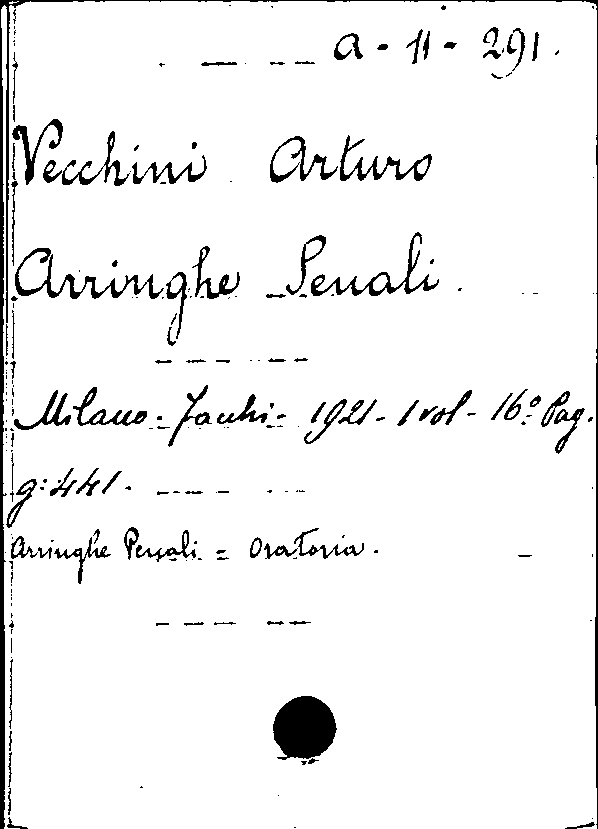 a - 11 - 291.
Vecchini Arturo
Arringhe Penali.
Milano - Facchi - 1921 - 1 vol - 16° Pag.
g: 441.
Arringhe Penali = Oratoria.